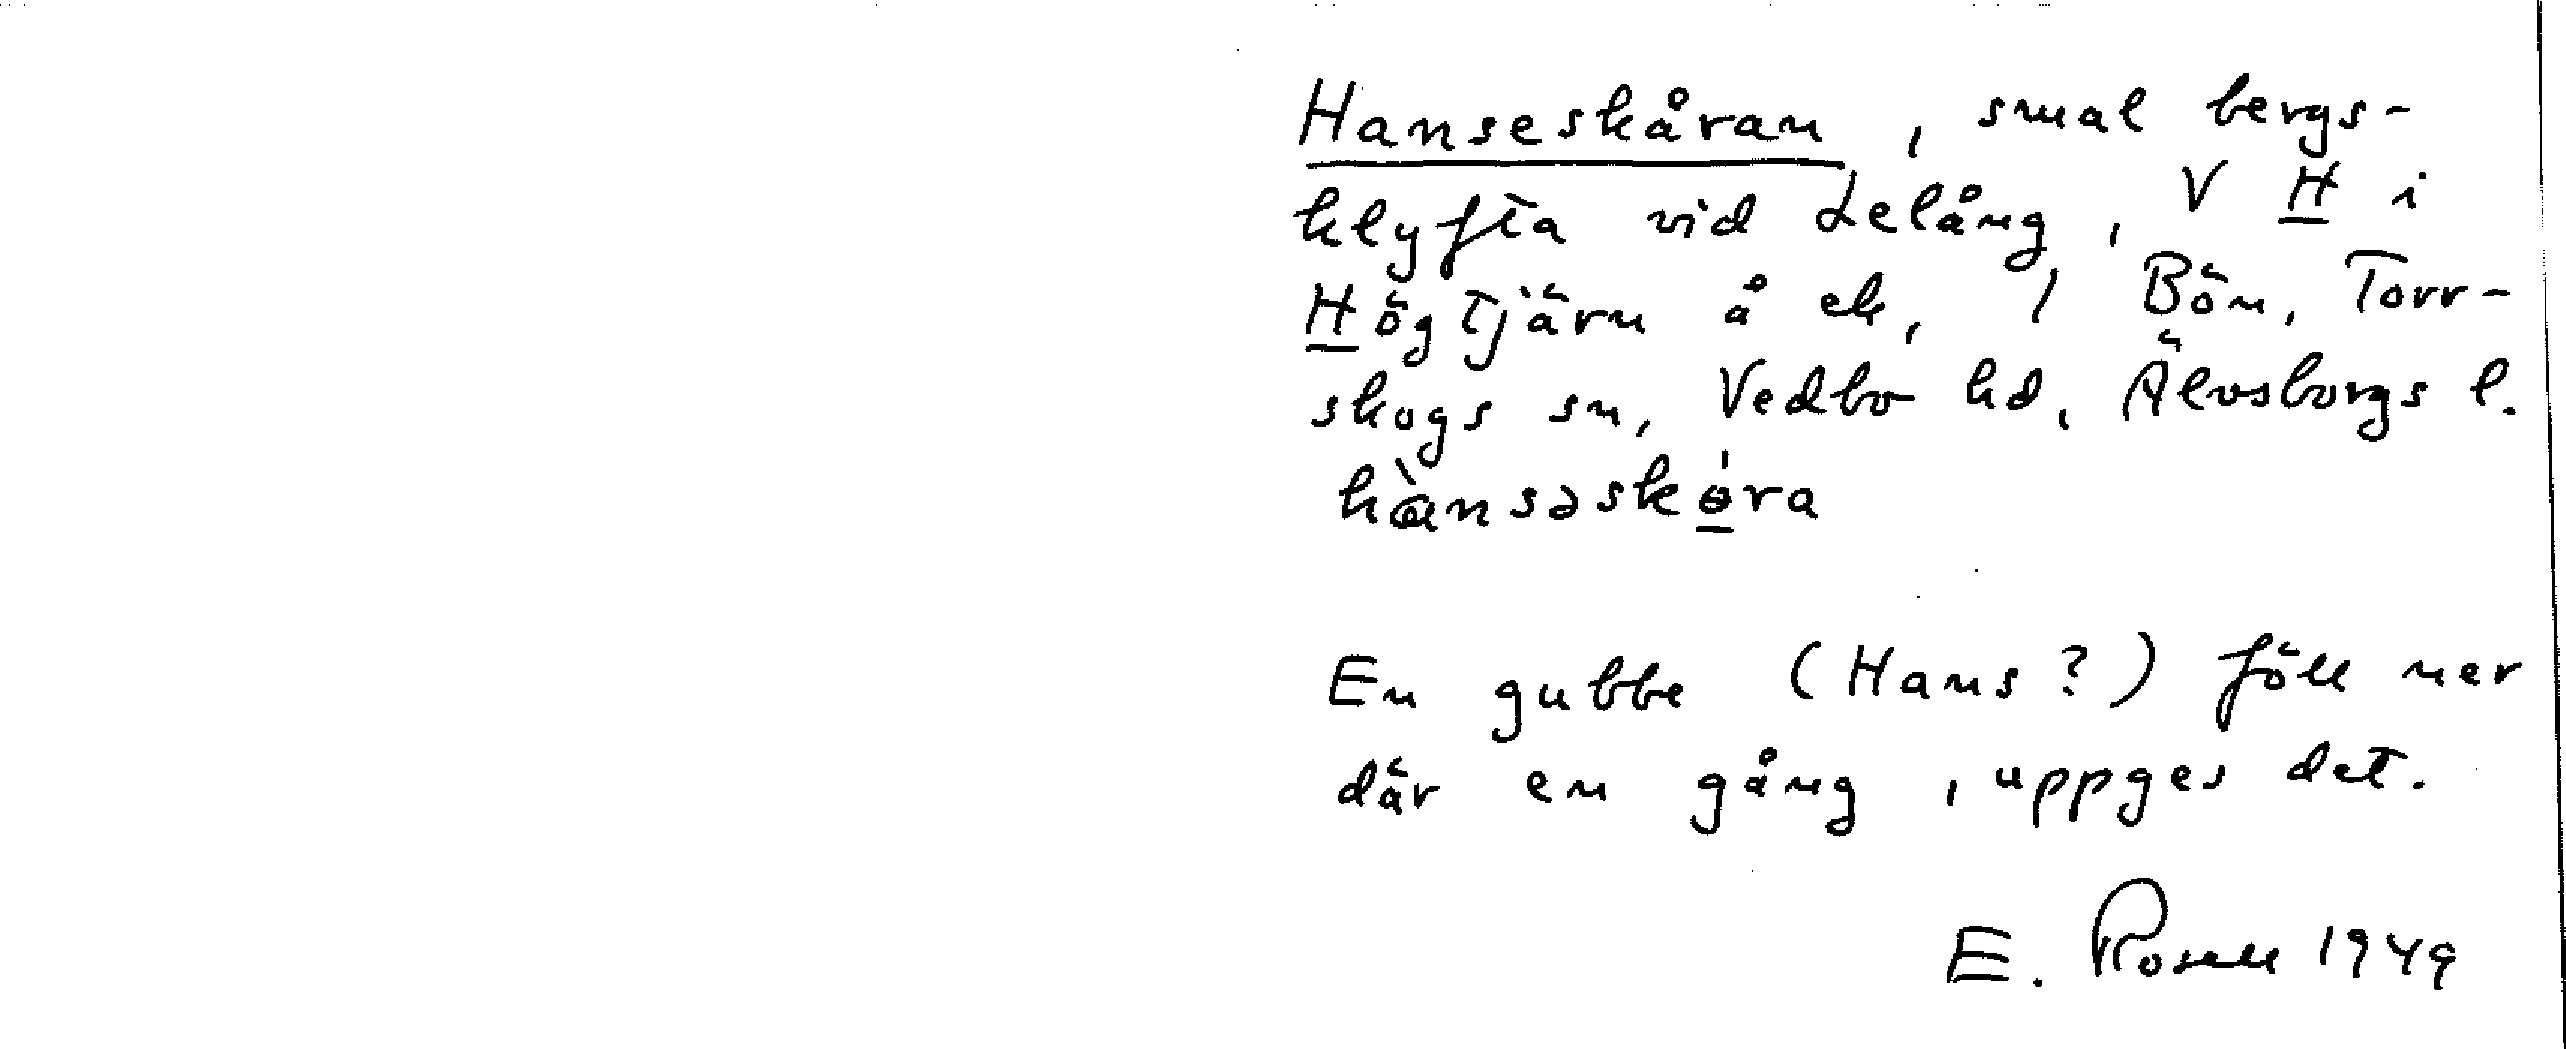 Hanseskåran, smal bergs-
klyfta vid Lelång, V H i
Högtjärn å ek, 1 Bön, Torr-
skogs sn, Vedbo hd, Älvsborgs l.
hànsəskɵ̲́ra
En gubbe (Hans?) föll ner
där en gång, uppges det.
E. Rosell 1949